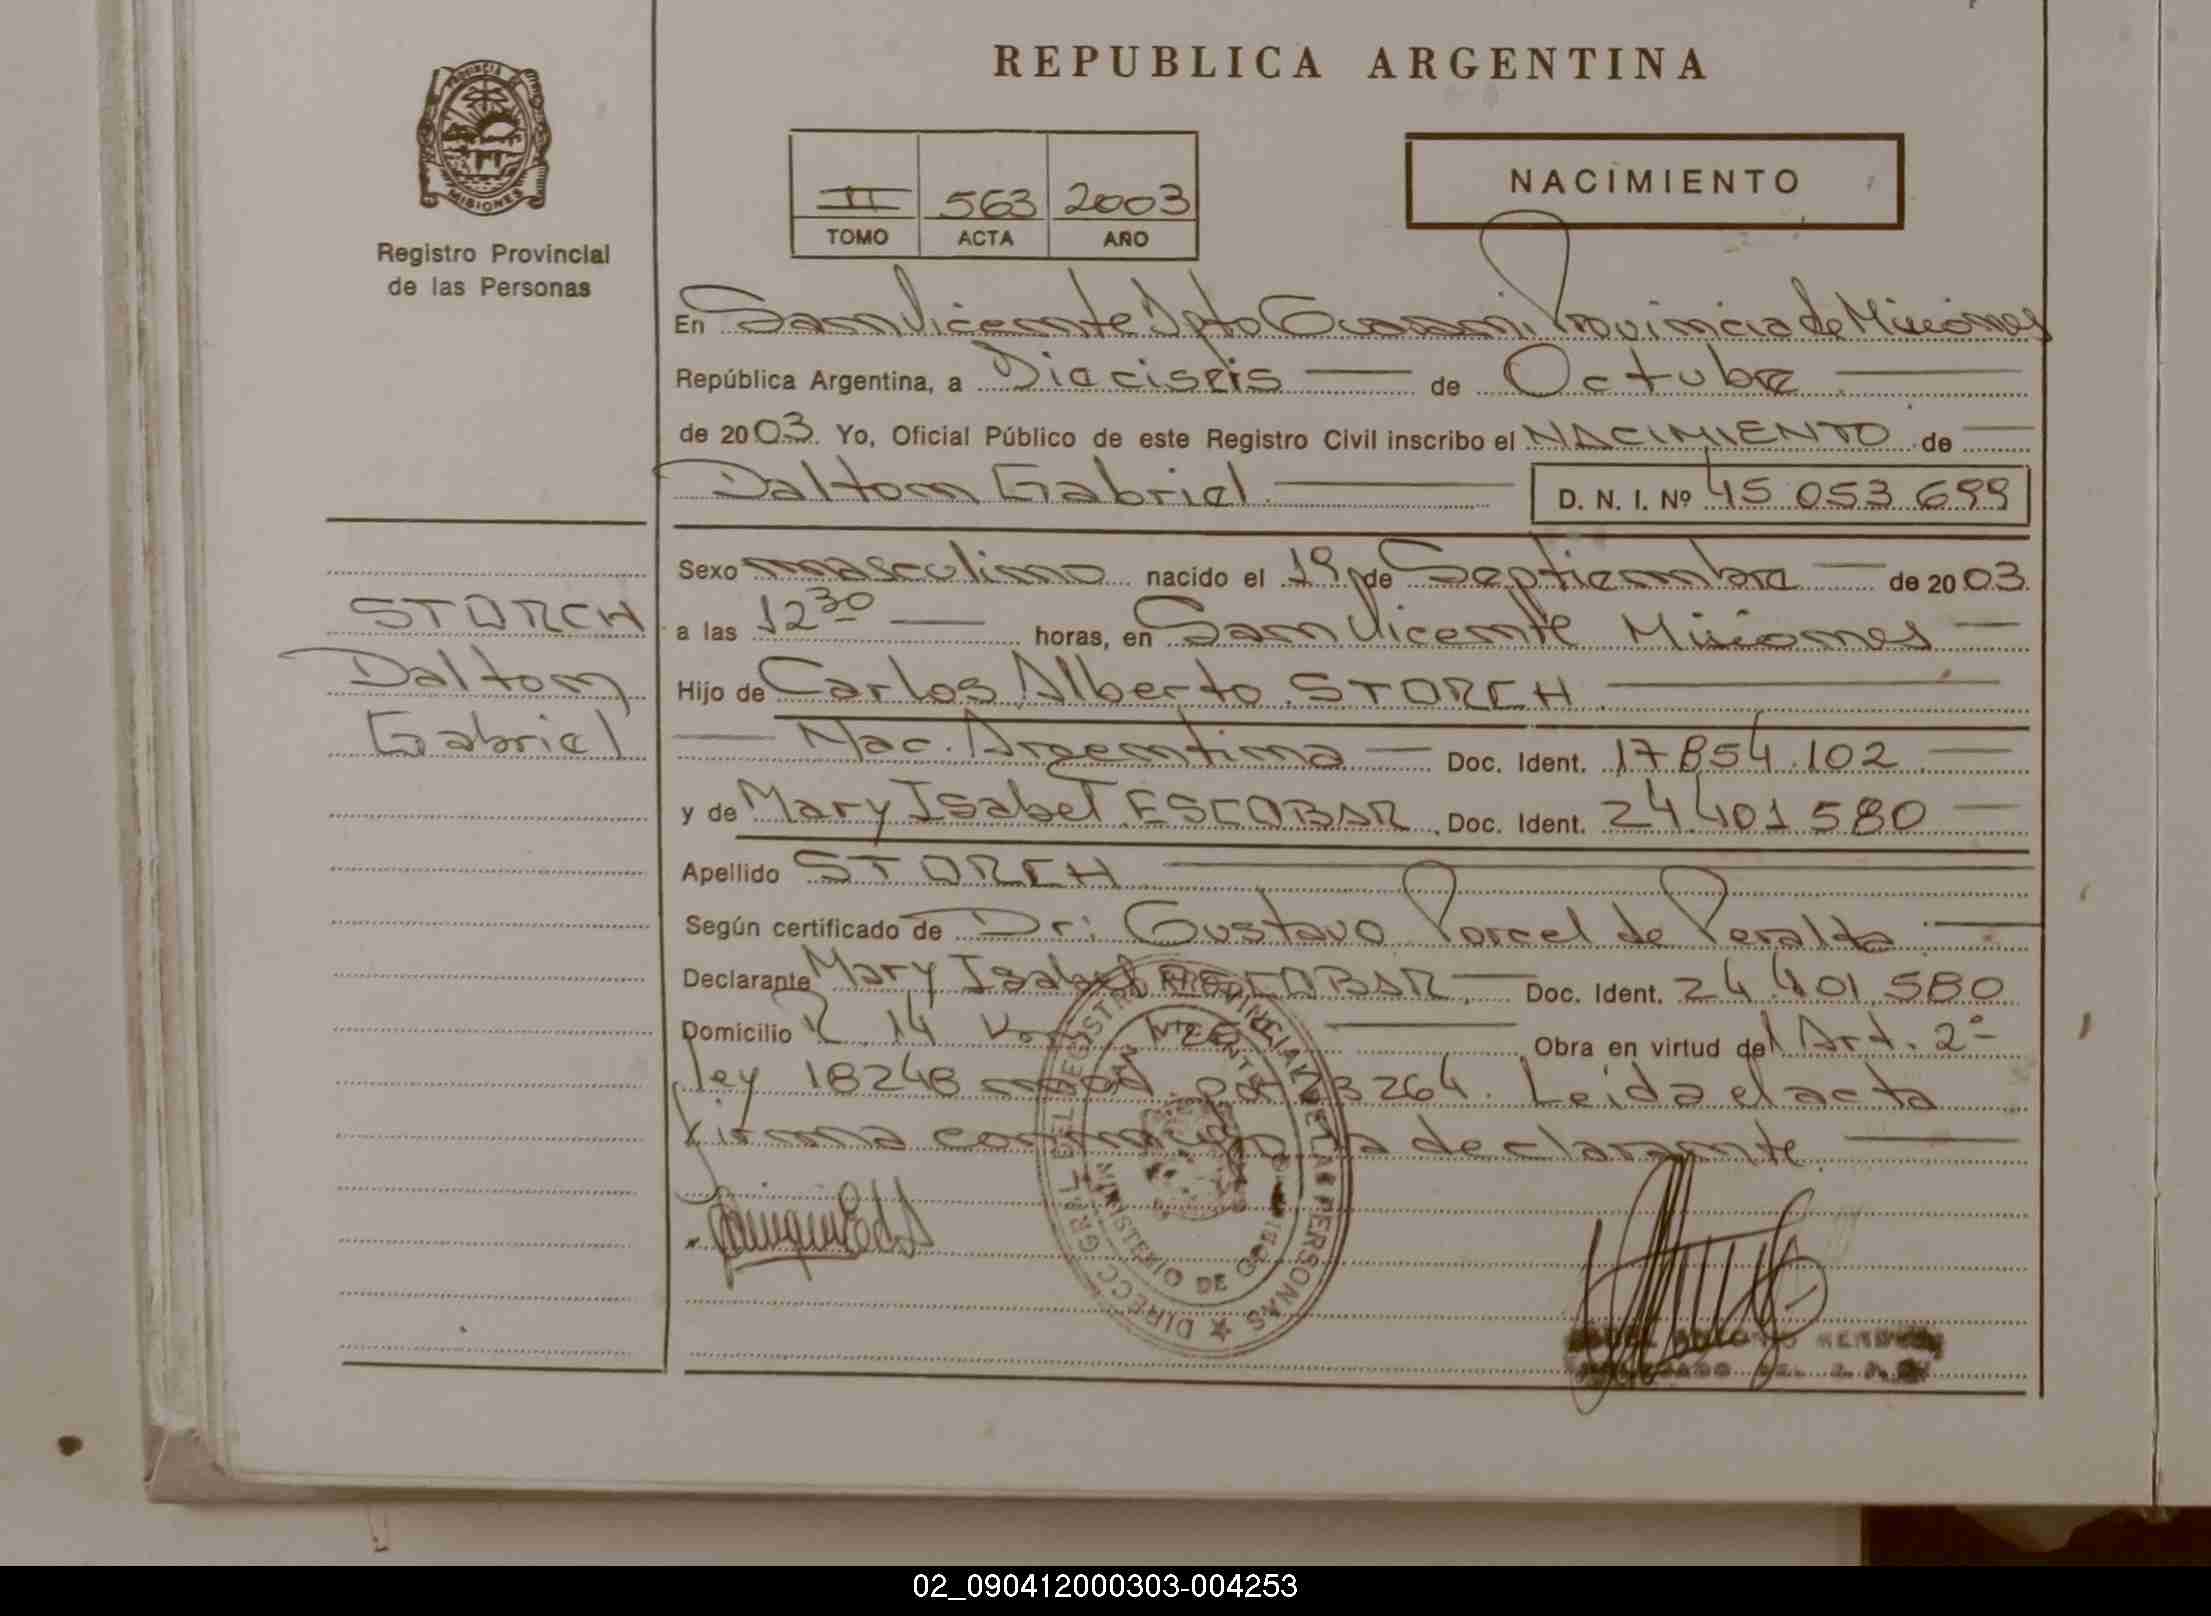 REPUBLICA ARGENTINA
PROVINCIA
MISIONES
Registro Provincial
de las Personas
II 563 2003
TOMO ACTA AÑO
NACIMIENTO
En San Vicente Dpto Guarani Provincia de Misiones
República Argentina, a Dieciseis de Octubre
de 2003. Yo, Oficial Público de este Registro Civil inscribo el NACIMIENTO de
Dalton Gabriel D. N. I. Nº 45 053 699
Sexo masculino nacido el 19 de Septiembre de 2003
a las 12 30 horas, en San Vicente Misiones
Hijo de Carlos Alberto STORCH
Nac. Argentina Doc. Ident. 17 854 102
y de Mary Isabel ESCOBAR Doc. Ident. 24 401 580
Apellido STORCH
Según certificado de Dr: Gustavo Porcel de Peralta
Declarante Mary Isabel ESCOBAR Doc. Ident. 24 401 580
Domicilio R 14 Obra en virtud del Art. 2º
ley 18248 mod por 23264. Leida el acta
firma conmigo la declarante.
STORCH
Dalton
Gabriel
DIRECC GRAL DEL REGISTRO PROVINCIAL DE LAS PERSONAS
MINISTERIO DE GOBIERNO
02_090412000303-004253